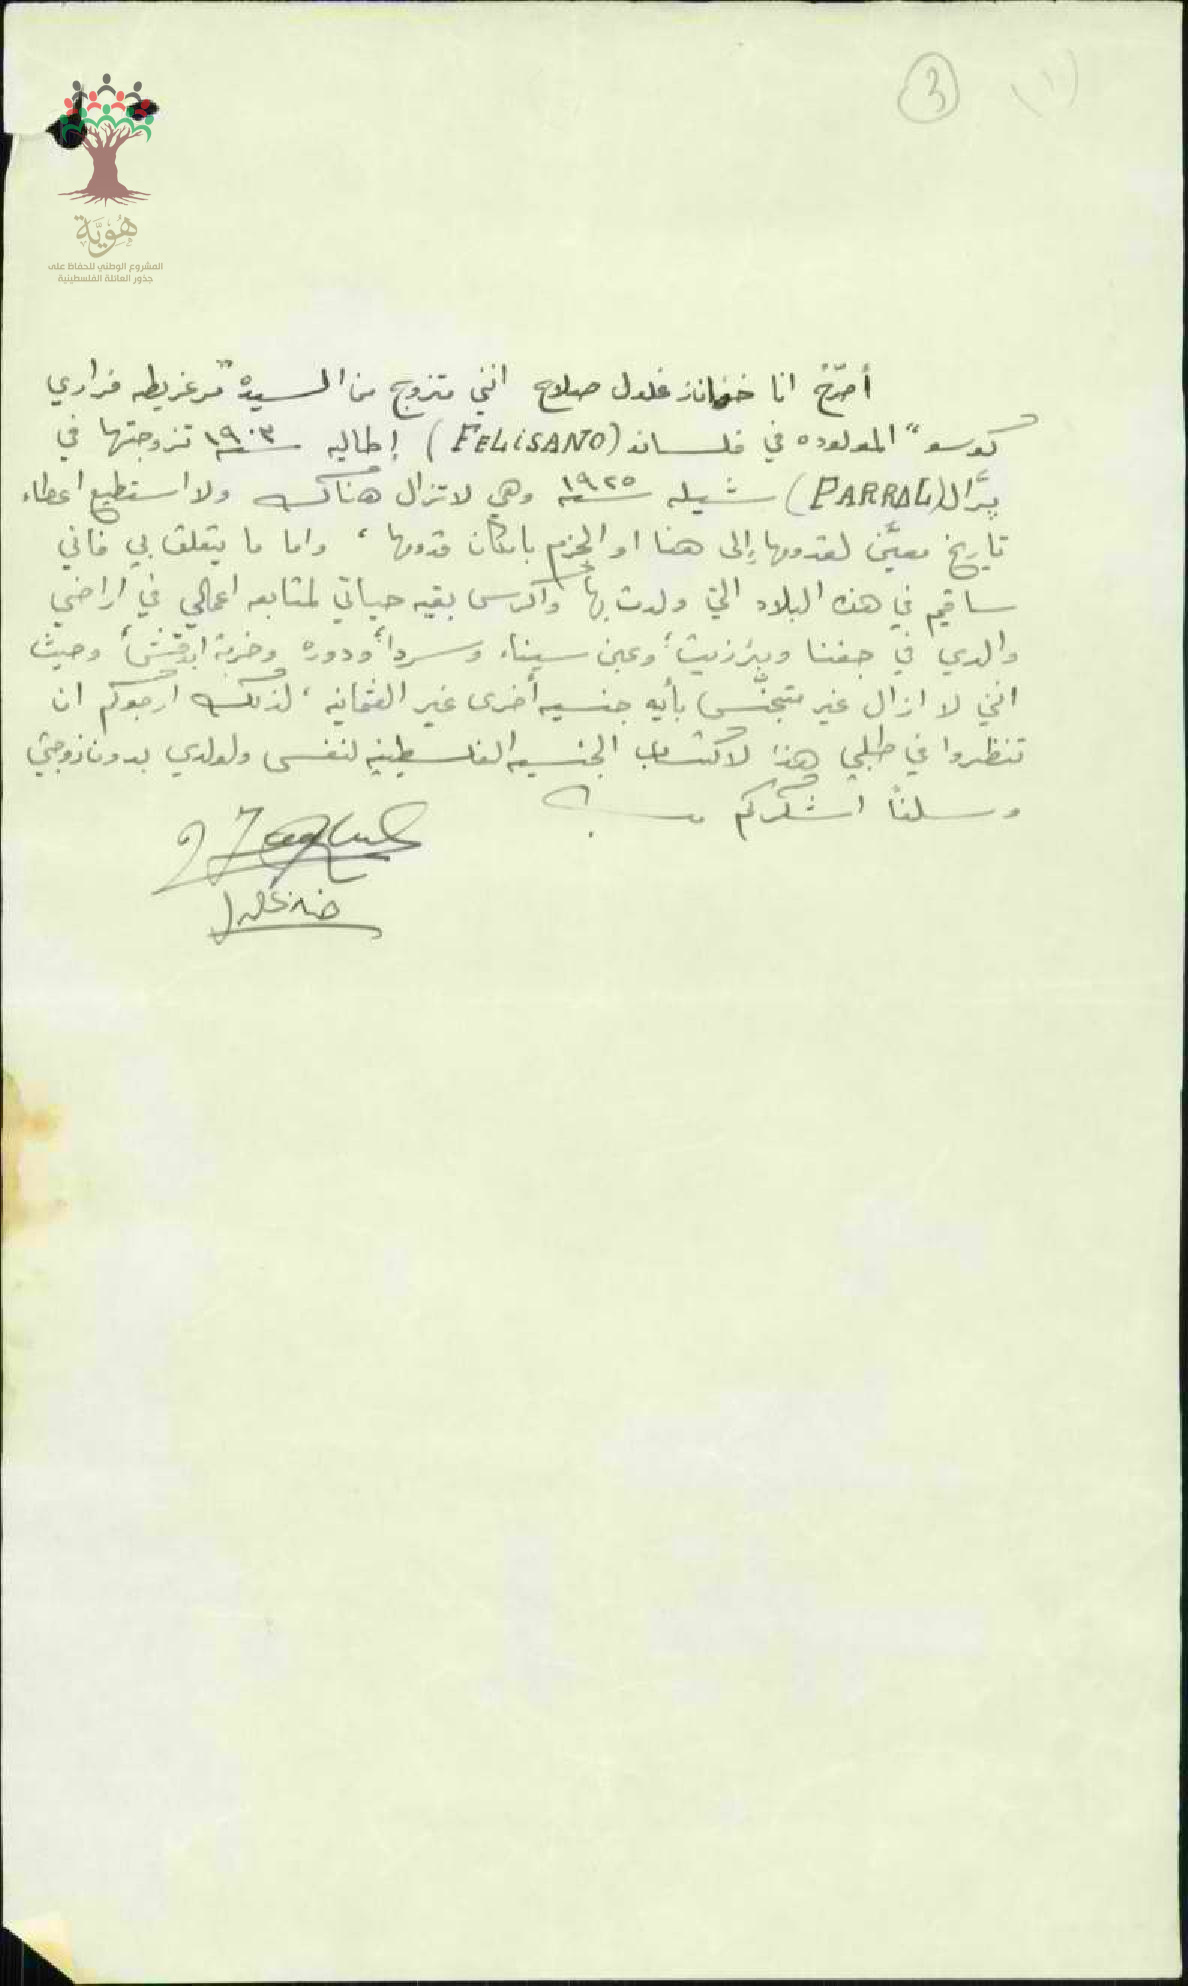 (١)
3
هُوِيَّة
المشروع الوطني للحفاظ على
جذور العائلة الفلسطينية
أصرّح انا زغلول صلاح انني متزوج من السيدة "مرغريطه فراري
كوسو" المولوده في فلسانو (FELiSANO) إطاليه سنة ١٩٠٣ تزوجتها في
پرّال (PARRAL) شيله سنة ١٩٢٥ وهي لا تزال هناك ولا استطيع اعطاء
تاريخ معيّن لقدومها إلى هنا او الجزم بامكان قدومها ، واما ما يتعلق بي فاني
ساقيم في هذه البلاد التي ولدت بها واكرس بقيه حياتي لمتابعه اعمالي في اراضي
والدي في جفنا وبيرزيت، وعين سينا، وسردا، ودوره وخربة ابو قش، وحيث
انني لا ازال غير متجنّس بأيه جنسيه أخرى غير العثمانيه ، لذلك ارجوكم ان
تنظروا في طلبي هذا لاكتساب الجنسيه الفلسطينيه لنفسي ولولدي بدون زوجتي
وسلفاً اشكركم